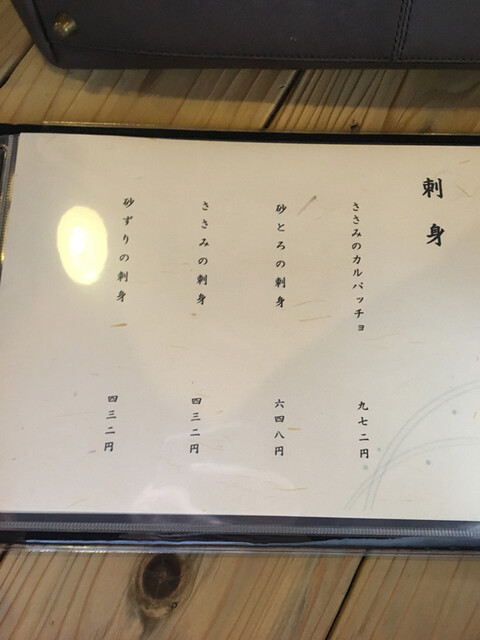 刺身
ささみのカルパッチョ
九七二円
砂とろの刺身
六四八円
ささみの刺身
四三二円
砂ずりの刺身
四三二円